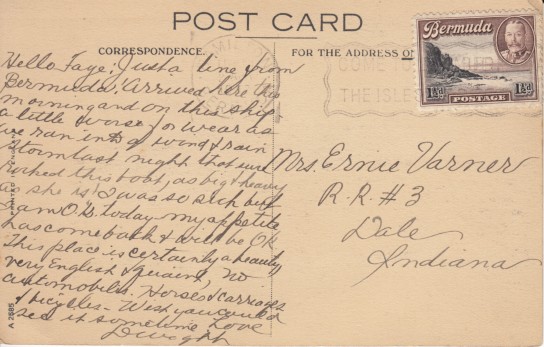 POST CARD
CORRESPONDENCE.
FOR THE ADDRESS ON
Hello Faye; Just a line from
Bermuda! Arrived here this
morning and on this ship
a little worse for wear as
we ran into a wind & rain
storm last night that sure
rocked this boat, as big & heavy
as she is! I was so sick but
am O.K. today my appetite
has come back & will be OK
This place is certainly a beauty
very English & quaint, no
automobiles. Horses & carriages
& bicycles - Wish you could
see it sometime Love
Dwight
Mrs. Ernie Varner
R.R. #3
Dale
Indiana
Bermuda
1½d
POSTAGE
1½d
COME TO
THE ISLES
A 2585
PRINTED IN ENGLAND